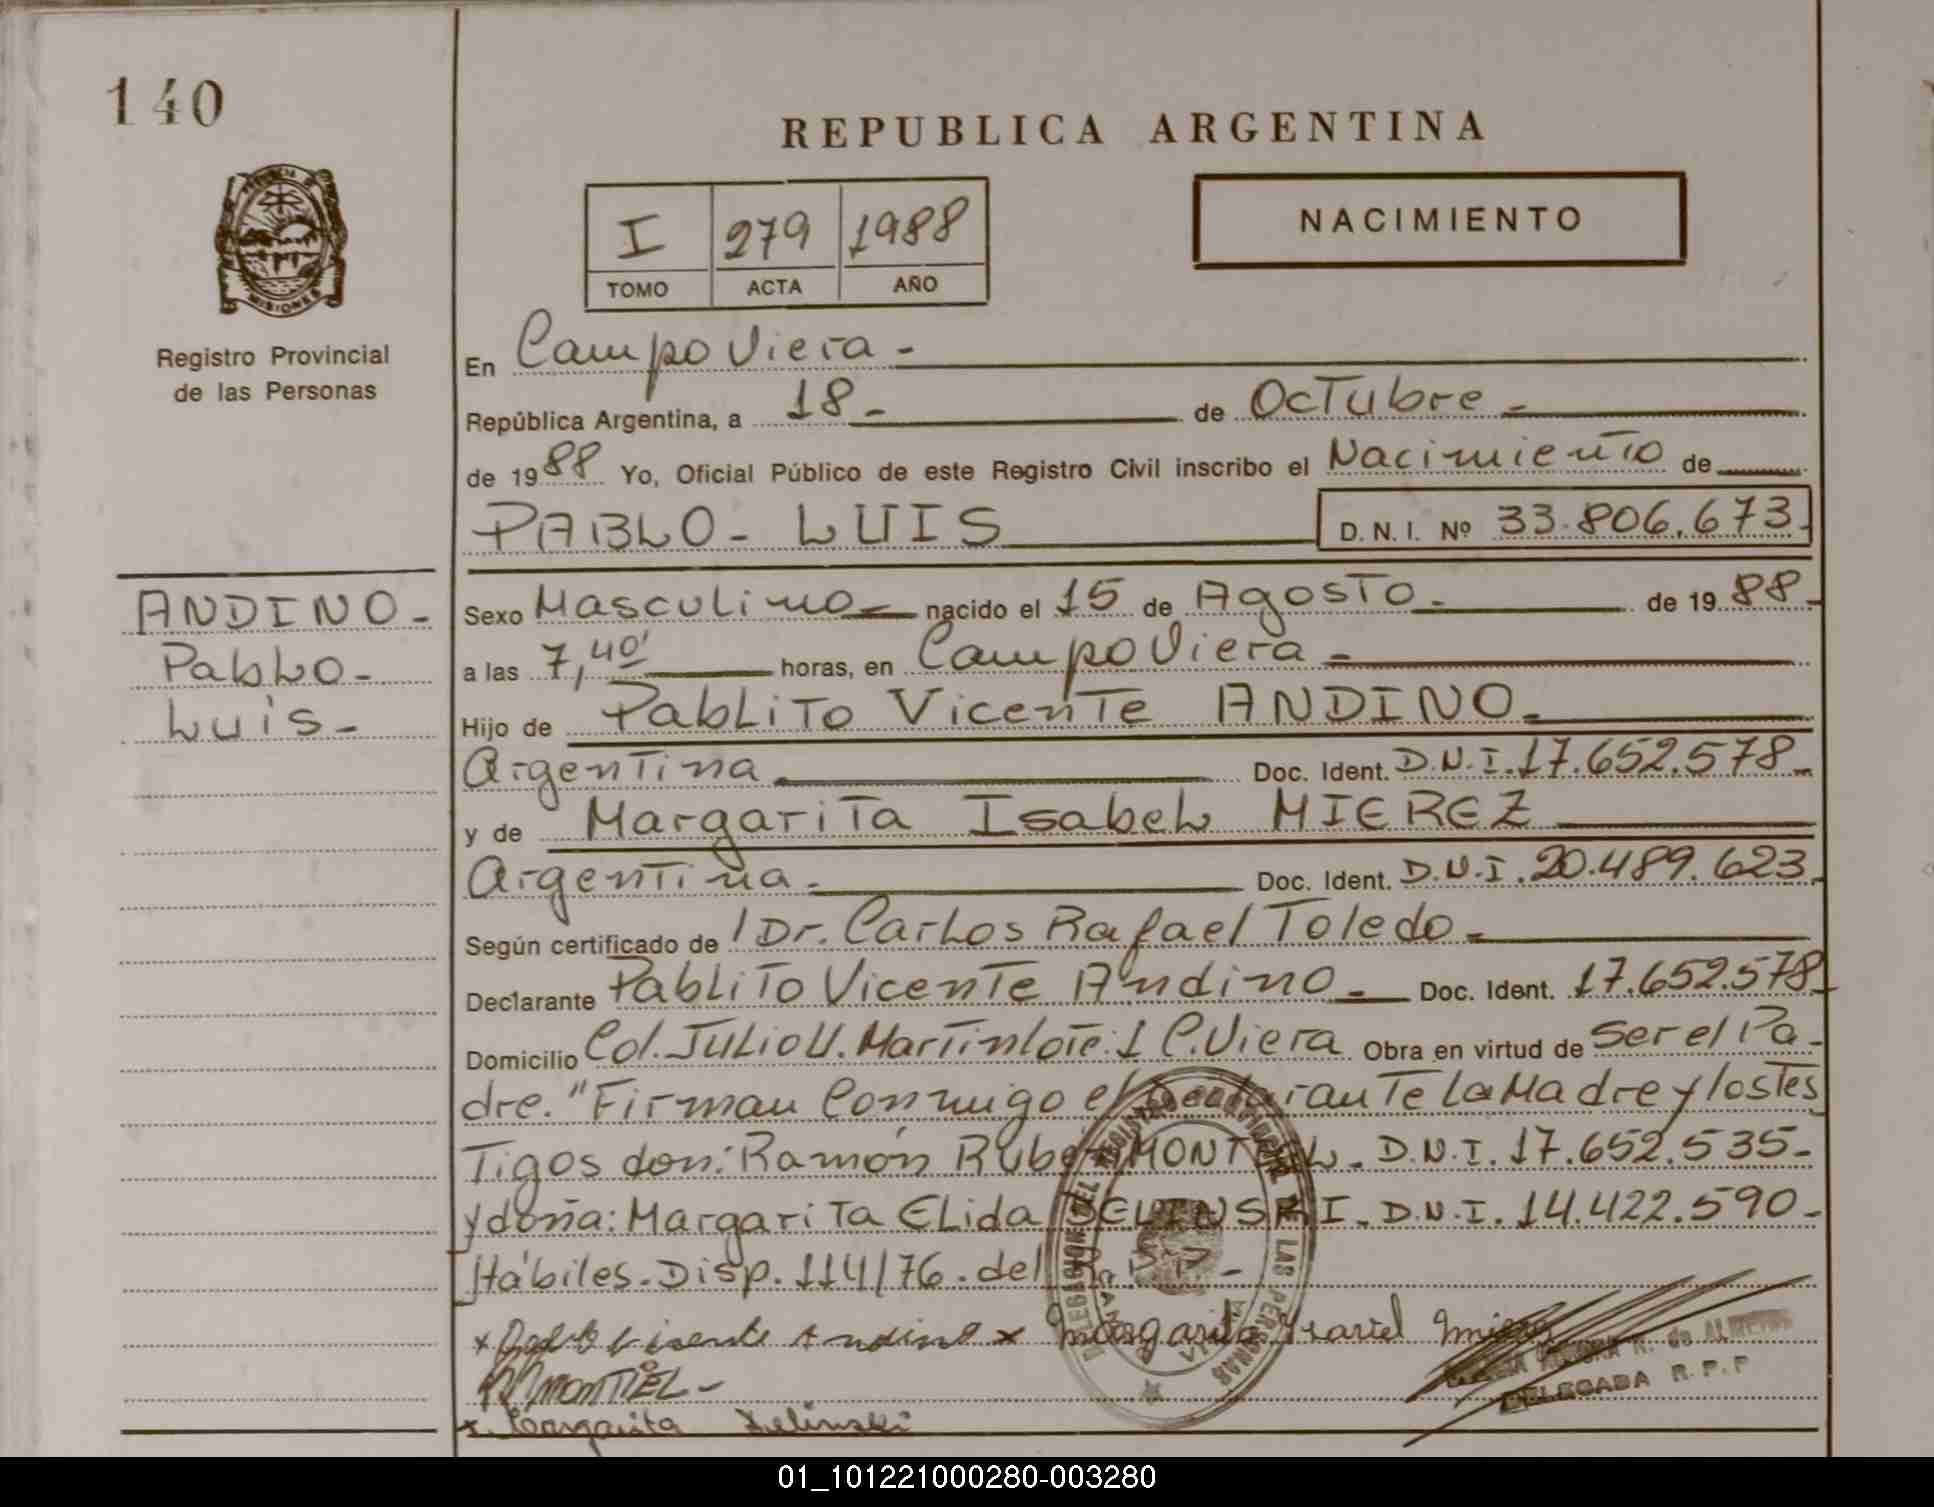 140
REPUBLICA ARGENTINA
PROVINCIA DE
MISIONES
Registro Provincial
de las Personas
I 279 1988
TOMO ACTA AÑO
NACIMIENTO
En Campo Viera -
República Argentina, a 18 - de Octubre -
de 1988 Yo, Oficial Público de este Registro Civil inscribo el Nacimiento de
PABLO - LUIS D. N. I. Nº 33.806.673.
ANDINO -
Pablo -
Luis -
Sexo Masculino - nacido el 15 de Agosto - de 1988 -
a las 7,40' horas, en Campo Viera -
Hijo de Pablito Vicente ANDINO -
Argentina Doc. Ident. D.N.I. 17.652.578 -
y de Margarita Isabel MIEREZ
Argentina - Doc. Ident. D.N.I. 20.489.623
Según certificado de Dr. Carlos Rafael Toledo -
Declarante Pablito Vicente Andino - Doc. Ident. 17.652.578
Domicilio Col. Julio U. Martin lote: 1 C. Viera Obra en virtud de Ser el Pa-
dre. "Firman Conmigo el Declarante La Madre y los Tes
Tigos don: Ramón Rubén MONTIEL - D.N.I. 17.652.535 -
y doña: Margarita Elida ZELINSKI - D.N.I. 14.422.590 -
Hábiles - Disp. 114/76 - del R.P.P. -
x Pablito Vicente Andino x Margarita Isabel
MONTIEL -
x Margarita Zelinski
DELEGACION DEL REGISTRO PROVINCIAL DE LAS PERSONAS
DELEGADA R. P. P
01_101221000280-003280